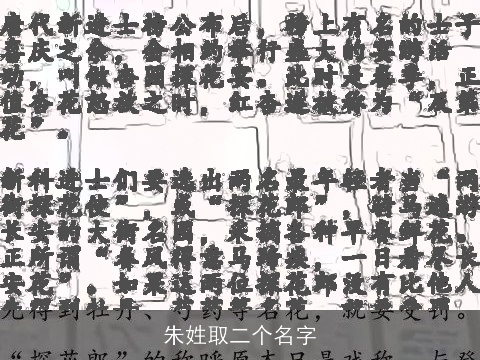 唐代新进士榜公布后，榜上有名的士子
喜庆之余，会相约举行盛大的宴游活
动，叫做杏园探花宴。此时是春季，正
值杏花怒放之时，红杏遂被称为“及第
花”。
新科进士们要选出两名最年轻者当“两
街探花使”，或“探花郎”，骑马遍游
长安的大街名园，采摘各种早春鲜花。
正所谓“春风得意马蹄疾，一日看尽长
安花。如果这两位探花郎没有比他人
先得到牡丹、芍药等名花，就要受罚。
“探花郎”的称呼原本只是戏称，与登
朱姓取二个名字